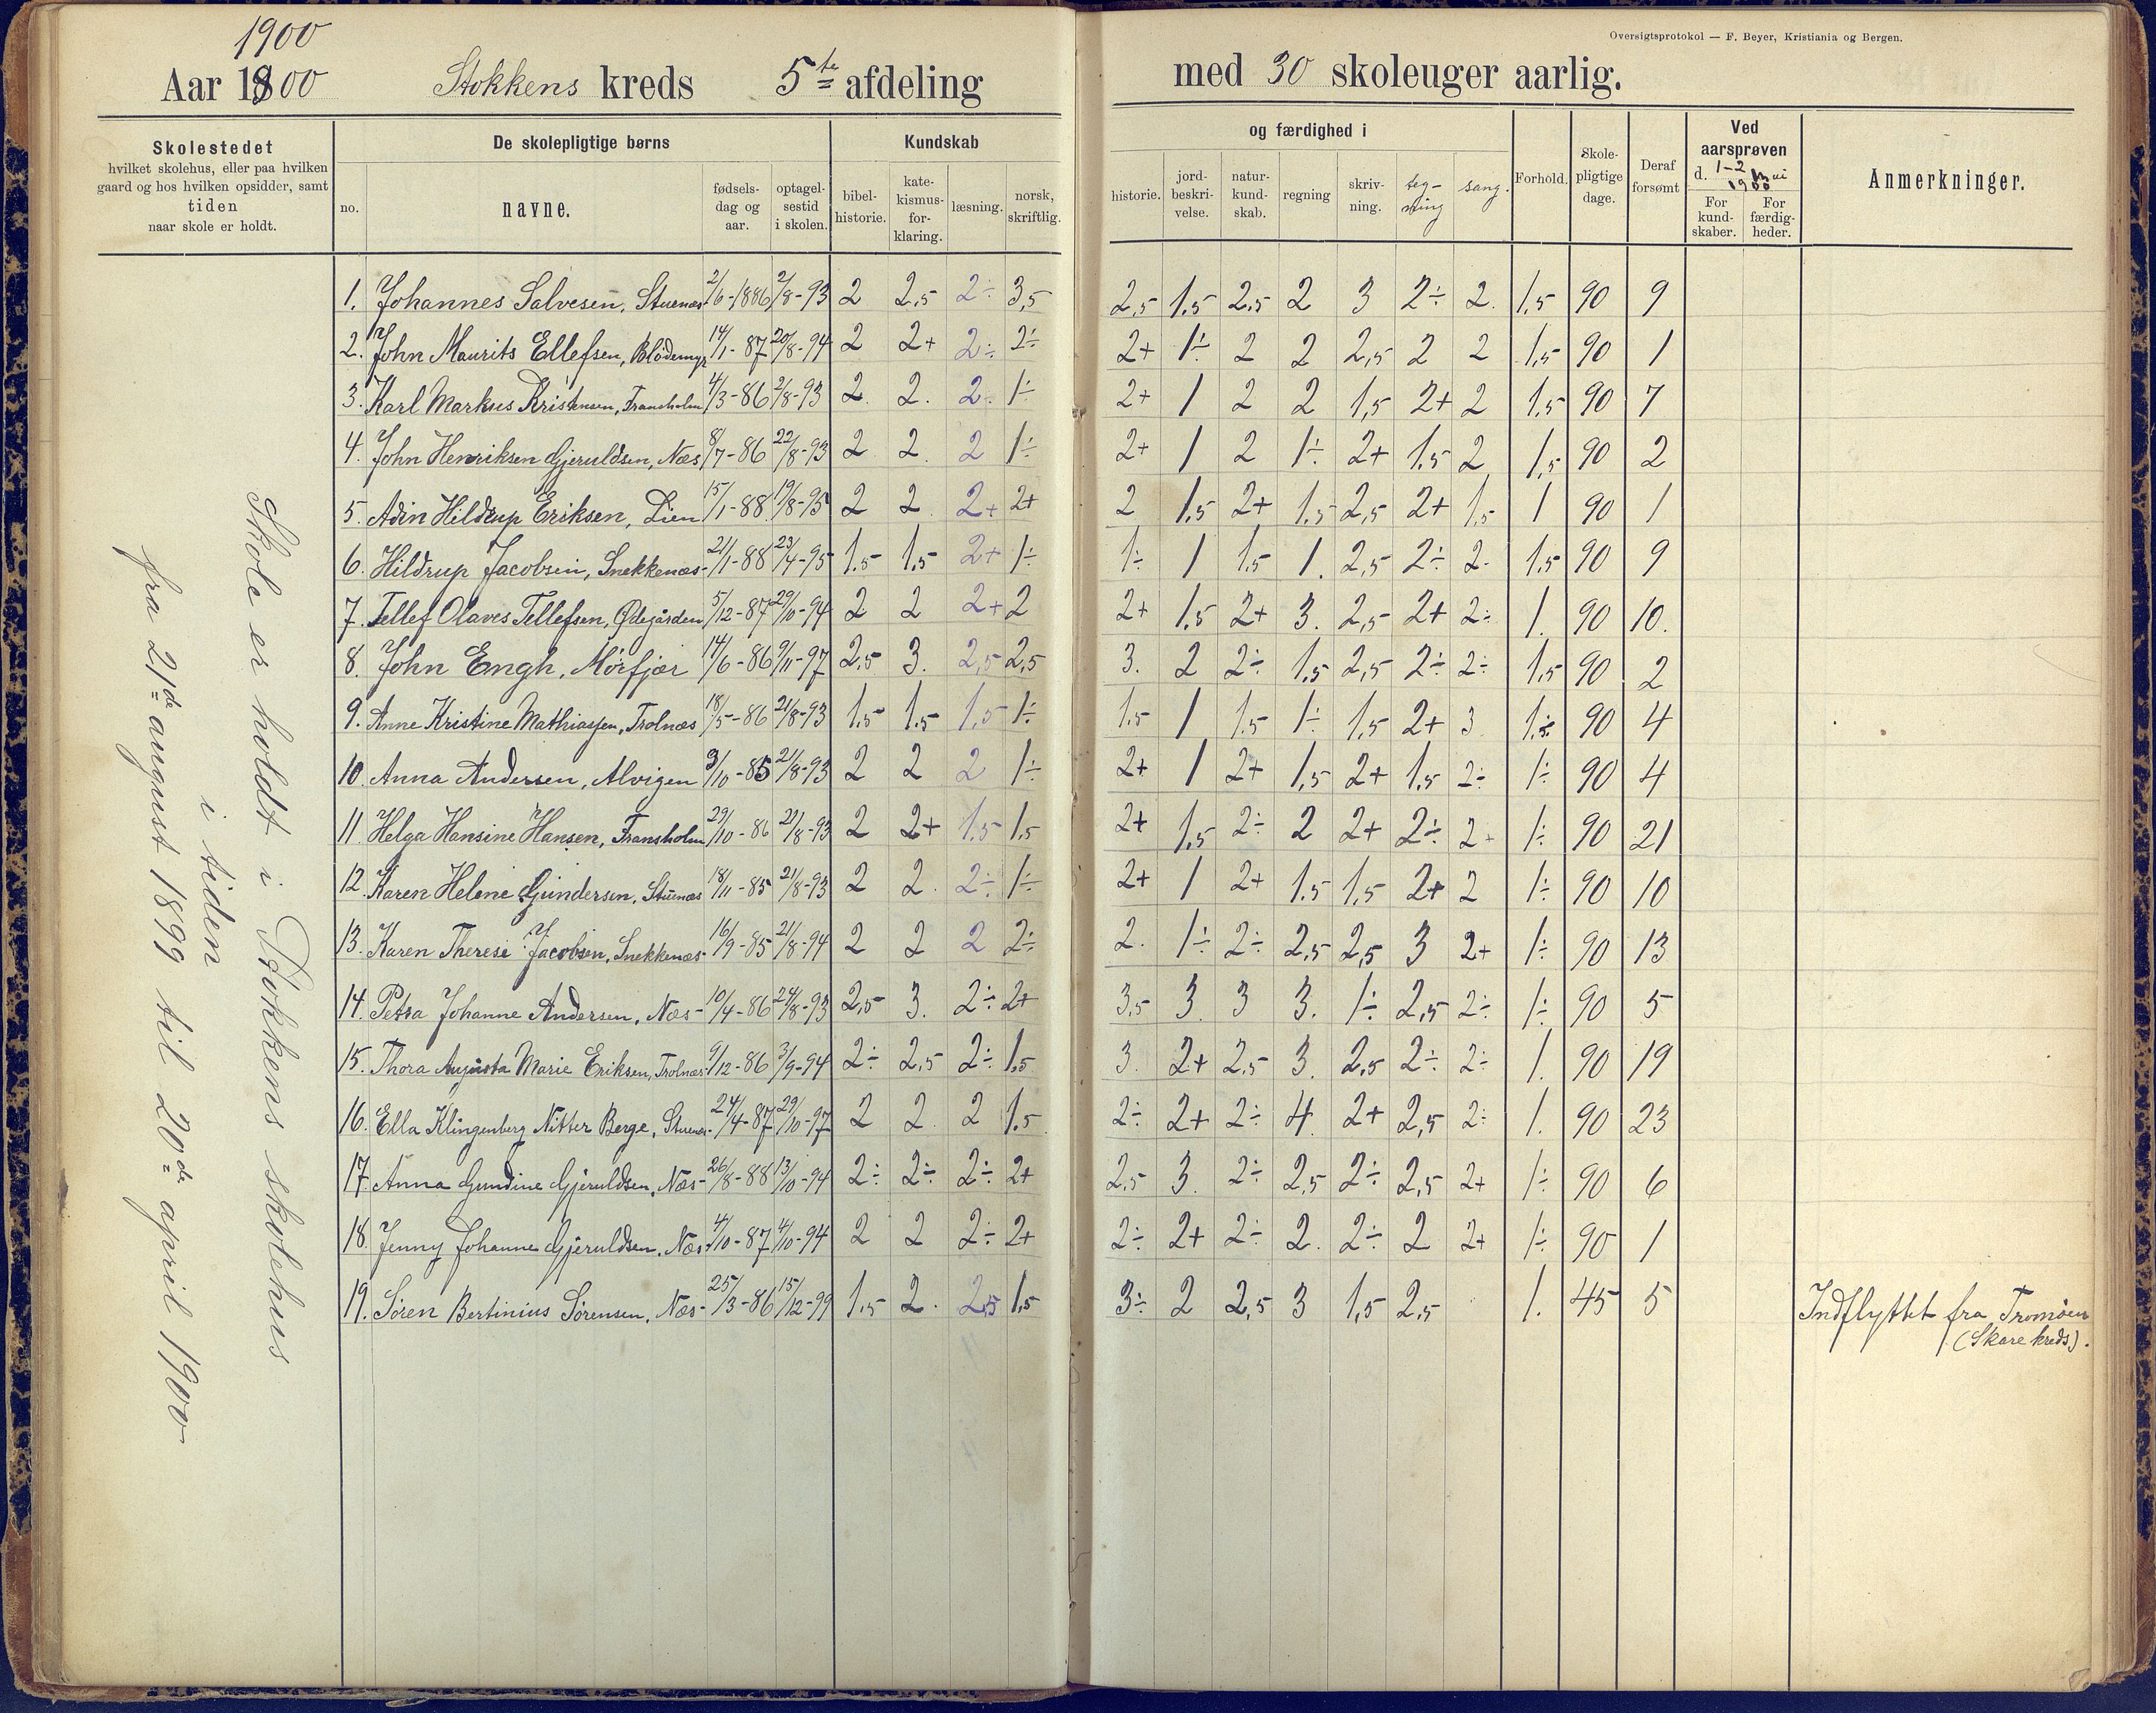 Oversigtsprotokol — F. Beyer, Kristiania og Bergen.
1900
Aar 1900 Stokkens kreds 5te afdeling med 30 skoleuger aarlig.
Skolestedet
hvilket skolehus, eller paa hvilken
gaard og hos hvilken opsidder, samt
tiden
naar skole er holdt.
De skolepligtige børns
no.
navne.
fødsels-
dag og
aar.
optagel-
sestid
i skolen.
Kundskab
bibel-
historie.
kate-
kismus-
for-
klaring.
læsning.
norsk,
skriftlig.
og færdighed i
historie.
jord-
beskri-
velse.
natur-
kund-
skab.
regning
skriv-
ning.
teg-
ning
sang.
Forhold.
Skole-
pligtige
dage.
Deraf
forsømt
Ved
aarsprøven
d. 1-2 mai
1900
For
kund-
skaber.
For
færdig-
heder.
Anmerkninger.
Skole er holdt i Stokkens skolehus
i tiden
fra 21de august 1899 til 20de april 1900
1. Johannes Salvesen, Stuenæs 2/6-1886 2/8-93 2 2,5 2÷ 3,5 2,5 1.5 2,5 2 3 2÷ 2. 1,5 90 9
2. John Maurits Ellefsen, Blødemyr 14/1-87 20/8-94 2 2+ 2÷ 2÷ 2+ 1÷ 2 2 2,5 2 2 1,5 90 1
3. Karl Markus Kristensen, Fransholm 4/3-86 2/8-93 2. 2. 2. 1÷ 2+ 1 2 2 1,5 2+ 2 1,5 90 7
4. John Henriksen Gjeruldsen, Næs 8/7-86 22/8-93 2 2. 2 1÷ 2+ 1 2 1÷ 2+ 1,5 2 1,5 90 2
5. Adin Hildrup Eriksen, Lien 15/1-88 19/8-95 2 2 2+ 2+ 2 1,5 2+ 1.5 2,5 2+ 1,5 1 90 1
6. Hildrup Jacobsen, Snekkenæs- 21/1-88 23/4-95 1.5 1.5 2+ 1÷ 1÷ 1 1.5 1. 2,5 2÷ 2- 1,5 90 9
7. Tellef Olaves Tellefsen, Ødegården 5/12-87 29/10-94 2 2 2+ 2 2+ 1.5 2+ 3. 2,5 2+ 2÷ 1. 90 10.
8. John Engh, Mörfjær 14/6-86 9/11-97 2,5 3. 2,5 2,5 3. 2 2÷ 1.5 2,5 2÷ 2÷ 1,5 90 2
9. Anne Kristine Mathiassen, Trolnæs 18/5-86 21/8-93 1.5 1.5 1.5 1÷ 1.5 1 1.5 1÷ 1,5 2+ 3 1.÷ 90 4
10. Anna Andersen, Alvigen 9/10-85 21/8-93 2 2 2 1÷ 2+ 1 2+ 1,5 2+ 1.5 2÷ 1÷ 90 4
11. Helga Hansine Hansen, Fransholm 29/10-86 21/8-93 2 2+ 1.5 1.5 2+ 1.5 2÷ 2 2+ 2÷ 2+ 1÷ 90 21
12. Karen Helene Gundersen, Stuenæs 18/11-85 21/8-93 2 2. 2÷ 1÷ 2+ 1 2+ 1.5 1,5 2+ 2 1÷ 90 10
13. Karen Therese Jacobsen, Snekkenæs- 16/9-85 21/8-94 2 2 2 2÷ 2. 1÷ 2÷ 2,5 2,5 3 2+ 1÷ 90 13
14. Petra Johanne Andersen, Næs- 10/4-86 24/8-93 2,5 3. 2÷ 2+ 3,5 3 3 3. 1÷ 2,5 2÷ 1÷ 90 5
15. Thora Augusta Marie Eriksen, Trolnæs- 9/12-86 3/9-94 2÷ 2,5 2÷ 1.5 3. 2+ 2,5 3. 2,5 2÷ 2÷ 1. 90 19
16. Ella Klingenberg Nitter Berge, Stuenæs- 24/4-87 29/10-97 2 2. 2 1.5 2÷ 2+ 2÷ 4. 2+ 2,5 2÷ 1. 90 23
17. Anna Gundine Gjeruldsen, Næs- 26/8-88 13/10-94 2÷ 2÷ 2÷ 2+ 2,5 3. 2÷ 2,5 2÷ 2,5 2+ 1÷ 90 6
18. Jenny Johanne Gjeruldsen, Næs- 4/10-87 4/10-94 2 2 2÷ 2+ 2÷ 2+ 2÷ 2. 2÷ 2 2+ 1÷ 90 1
19. Sören Bertinius Sörensen, Næs- 25/3-86 15/12-99 1.5 2. 2,5 1,5 3÷ 2 2,5 3 1,5 2,5 1. 45 5 Indflyttet fra Tromöen
(Skare kreds).